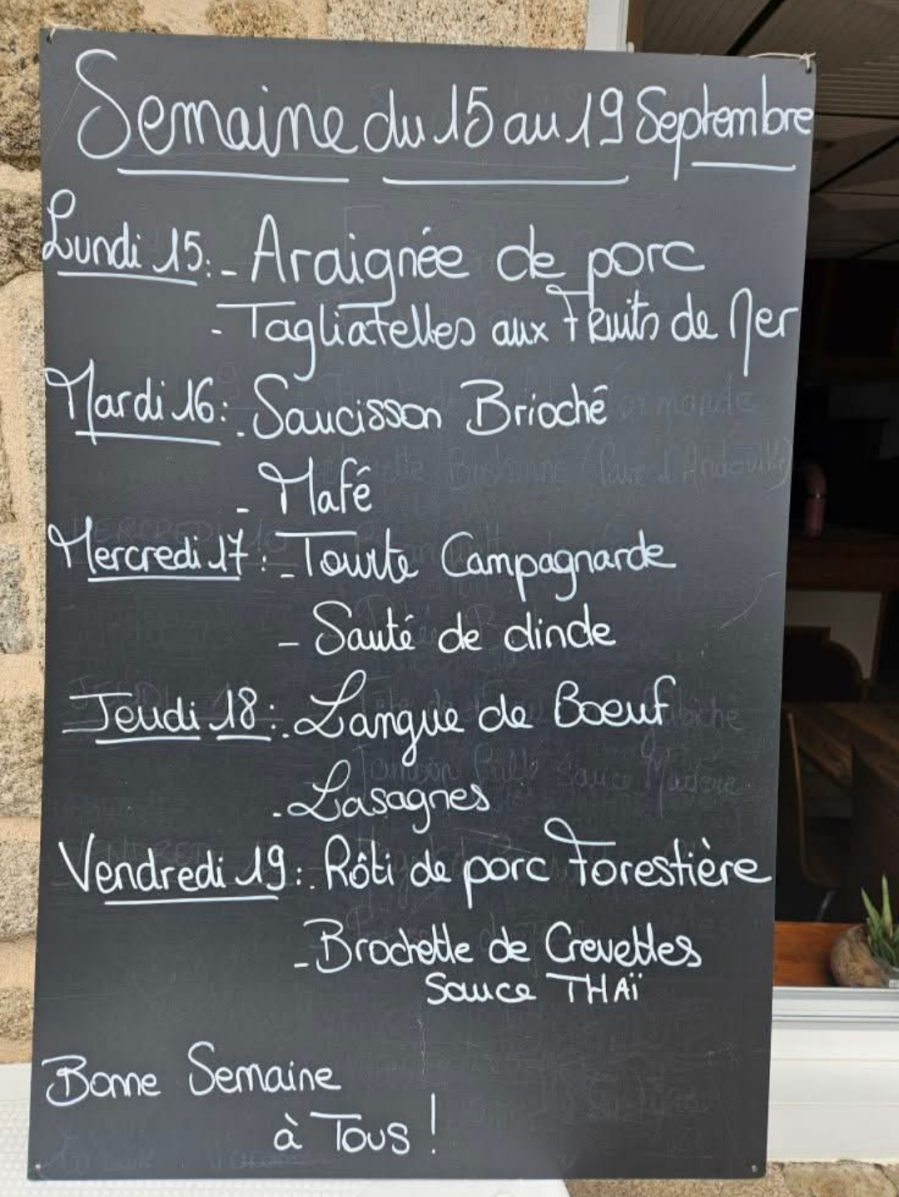 Semaine du 15 au 19 Septembre
Lundi 15: - Araignée de porc
- Tagliatelles aux Fruits de Mer
Mardi 16: - Saucisson Brioché
- Mafé
Mercredi 17: - Tourte Campagnarde
- Sauté de dinde
Jeudi 18: - Langue de Boeuf
- Lasagnes
Vendredi 19: - Rôti de porc Forestière
- Brochette de Crevettes
Sauce THAÏ
Bonne Semaine
à Tous !